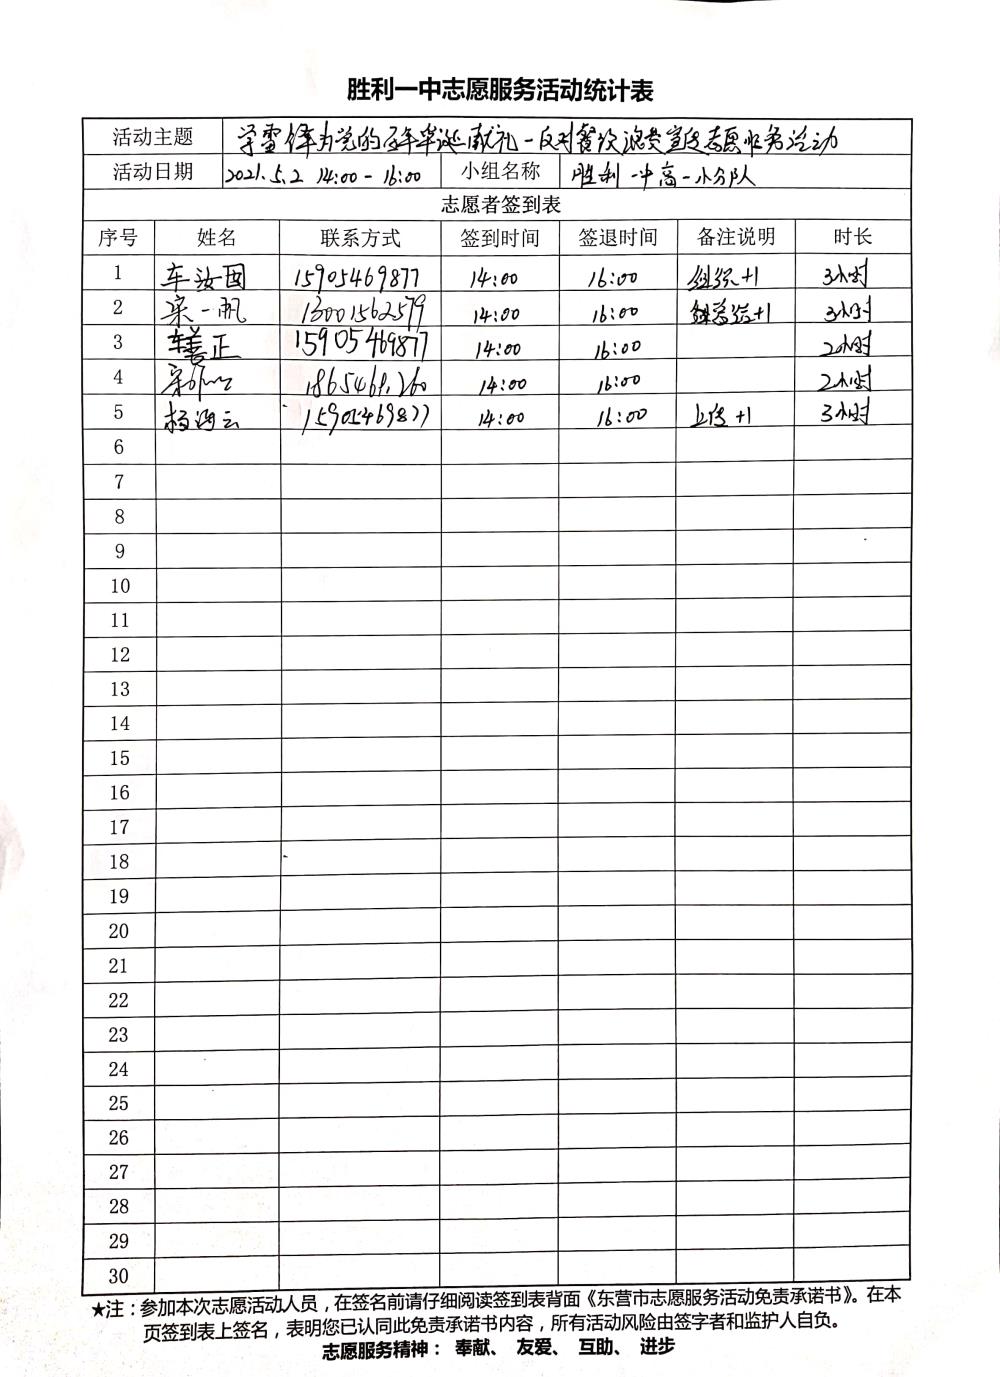 胜利一中志愿服务活动统计表
活动主题 学雷锋为党的百年华诞献礼-反对餐饮浪费宣传志愿服务活动
活动日期 2021.5.2 14:00-16:00 小组名称 胜利一中高一小分队
志愿者签到表
序号 姓名 联系方式 签到时间 签退时间 备注说明 时长
1 车汝国 15905469877 14:00 16:00 组织+1 3小时
2 宋一帆 13001562579 14:00 16:00 +1 3小时
3 车善正 15905469877 14:00 16:00 2小时
4 宋 14:00 16:00 2小时
5 杨海云 15905469877 14:00 16:00 上传+1 3小时
6
7
8
9
10
11
12
13
14
15
16
17
18
19
20
21
22
23
24
25
26
27
28
29
30
★注：参加本次志愿活动人员，在签名前请仔细阅读签到表背面《东营市志愿服务活动免责承诺书》。在本
页签到表上签名，表明您已认同此免责承诺书内容，所有活动风险由签字者和监护人自负。
志愿服务精神： 奉献、 友爱、 互助、 进步